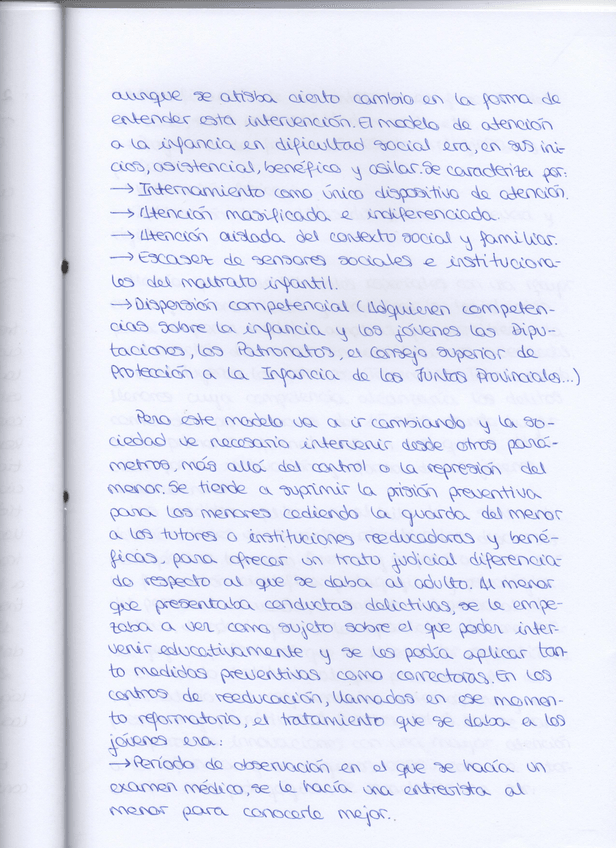 aunque se atisba cierto cambio en la forma de
entender esta intervención. El modelo de atención
a la infancia en dificultad social era, en sus ini-
cios, asistencial, benéfico y asilar. Se caracteriza por:
→ Internamiento como único dispositivo de atención.
→ Atención masificada e indiferenciada.
→ Atención aislada del contexto social y familiar.
→ Escasez de sensores sociales e instituciona-
les del maltrato infantil.
→ Dispersión competencial (Adquieren competen-
cias sobre la infancia y los jóvenes las Dipu-
taciones, los Patronatos, el consejo superior de
Protección a la Infancia de las Juntas Provinciales...)
Pero éste modelo va a ir cambiando y la so-
ciedad ve necesario intervenir desde otros pará-
metros, más allá del control o la represión del
menor. Se tiende a suprimir la prisión preventiva
para los menores cediendo la guarda del menor
a los tutores o instituciones reeducadoras y bené-
ficas, para ofrecer un trato judicial diferencia-
do respecto al que se daba al adulto. Al menor
que presentaba conductas delictivas, se le empe-
zaba a ver como sujeto sobre el que poder inter-
venir educativamente y se les podía aplicar tan-
to medidas preventivas como correctoras. En los
centros de reeducación, llamados en ese momen-
to reformatorio, el tratamiento que se daba a los
jóvenes era:
→ Período de observación en el que se hacía un
examen médico, se le hacía una entrevista al
menor para conocerle mejor..